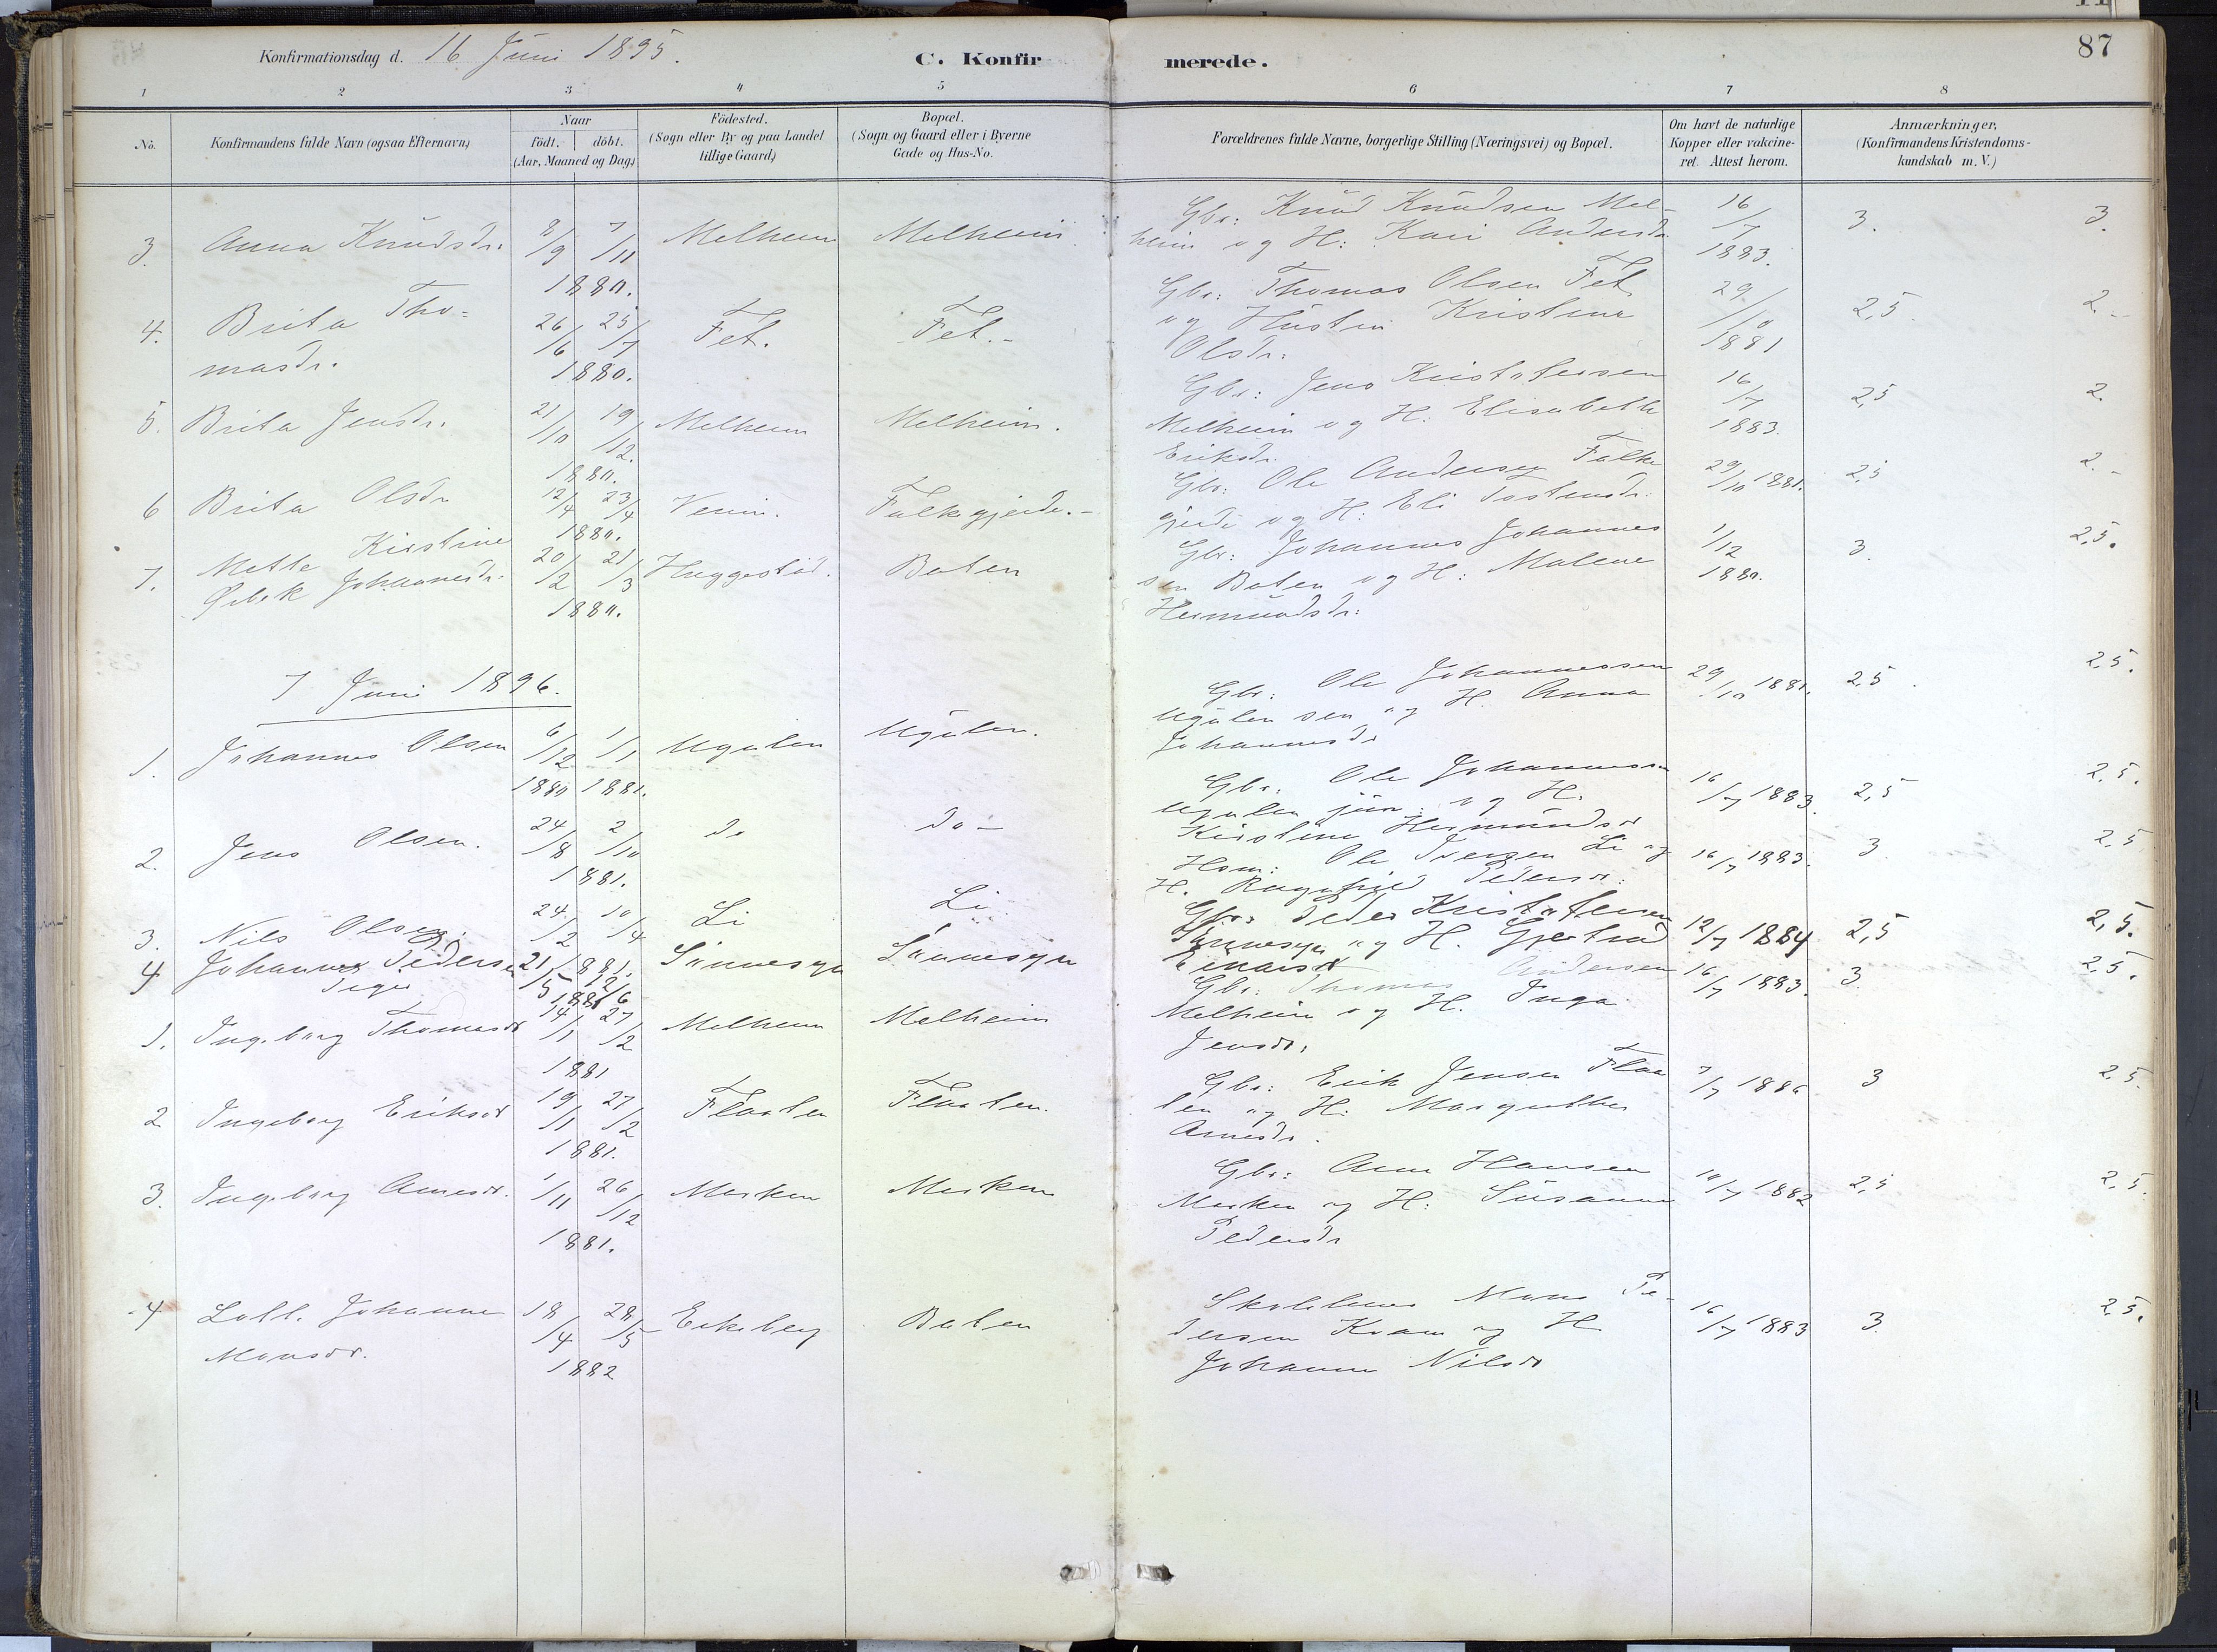 87
Konfirmationsdag d. 16 Juni 1895. C. Konfir merede.
1 2 3 4 5 6 7 8
No. Konfirmandens fulde Navn (ogsaa Efternavn) Naar födt. döbt. (Aar, Maaned og Dag) Födested. (Sogn eller By og paa Landet tillige Gaard) Bopæl. (Sogn og Gaard eller i Byerne Gade og Hus-No. Forældrenes fulde Navne, borgerlige Stilling (Næringsvei) og Bopæl. Om havt de naturlige Kopper eller vakcineret. Attest herom. Anmærkninger, (Konfirmandens Kristendomskundskab m. V.)
Gbr: Knud Knudsen Mel- 16/7
3. Anna Knudsdr. 8/9 7/11 Melheim Melheim. heim og H: Kari Andersdr 1883. 3. 3.
1880.
Gbr: Thomas Olsen Fet 29/10
4. Brita Tho= 26/6 25/7 Fet. Fet.- og Hustru Kristine 1881 2,5. 2.-
masdr. 1880. Olsdr.
Gbr: Jens Kristofersen 16/7
5. Brita Jensdr. 21/10 19/12. Melheim Melheim. Melheim og H: Elisabeth 1883. 2,5 2.
1880. Eriksdr.
Gbr: Ole Andersen Falke 29/10 1881. 2,5 2.-
6 Brita Olsdr 12/4 23/4 Falkegjerde.- gjerde og H: Eli Tostensdr.
1880.
7. Mette Kirstine 20/2 21/3 Huggestad. Boten Gbr: Johannes Johannes 1/12 3. 2,5.
Johannesdr. sen Boten og H: Malene 1880.
1880. Hermundsdr:
7 Juni 1896.
Gbr: Ole Johannessen 29/10 1881. 2,5. 2,5.
1. Johannes Olsen 6/12 1/1 Ugulen Ugulen. Ugulen sen og H. Anna
1880 1881. Johannesdr
Gbr. Ole Johannessen 16/7 1883. 2,5 2,5.
2. Jens Olsen. 24/8 2/10 do do- Ugulen jun: og H.
1881. Kirstine Hermundsdr
3. Nils Olsen. 24/2 10/4 Li Li Hsm: Ole Iversen Li og 16/7 1883. 3 2,5
1881. H. Ragnhild Pedersdr.
4 Johannes Pedersen 21/5 12/6 Sønnesyn Sønnesyn Gbr: Peder Kristofersen 12/7 1884 2,5 2,5.
1881 Sønnesyn og H. Gjertrud
Einarsdr
Piger
Gbr: Thomas Andersen 16/7 1883. 3. 2,5.
1. Ingeborg Thomasdr 14/1 27/2 Melheim Melheim Melheim og H. Inga
1881 Jensdr.
Gbr: Erik Jensen Flaa 7/7 1886 3 2,5.
2 Ingeborg Eriksdr 19/1 27/2 Flaaten Flaaten. ten og H: Margrethe
1881. Arnesdr.
Gbr: Arne Hansen
3. Ingeborg Arnesdr. 1/11 26/12 Morken Morken Morken og H: Susanne 10/7 1882 2,5 2,5.
1881. Pedersdr
Mons Pe-
4 Johanne 18/4 28/5 Eikeberg Boten dersen Kvam og H 16/7 1883 3. 2,5.
Monsdr. 1882 Johanne Nilsdr